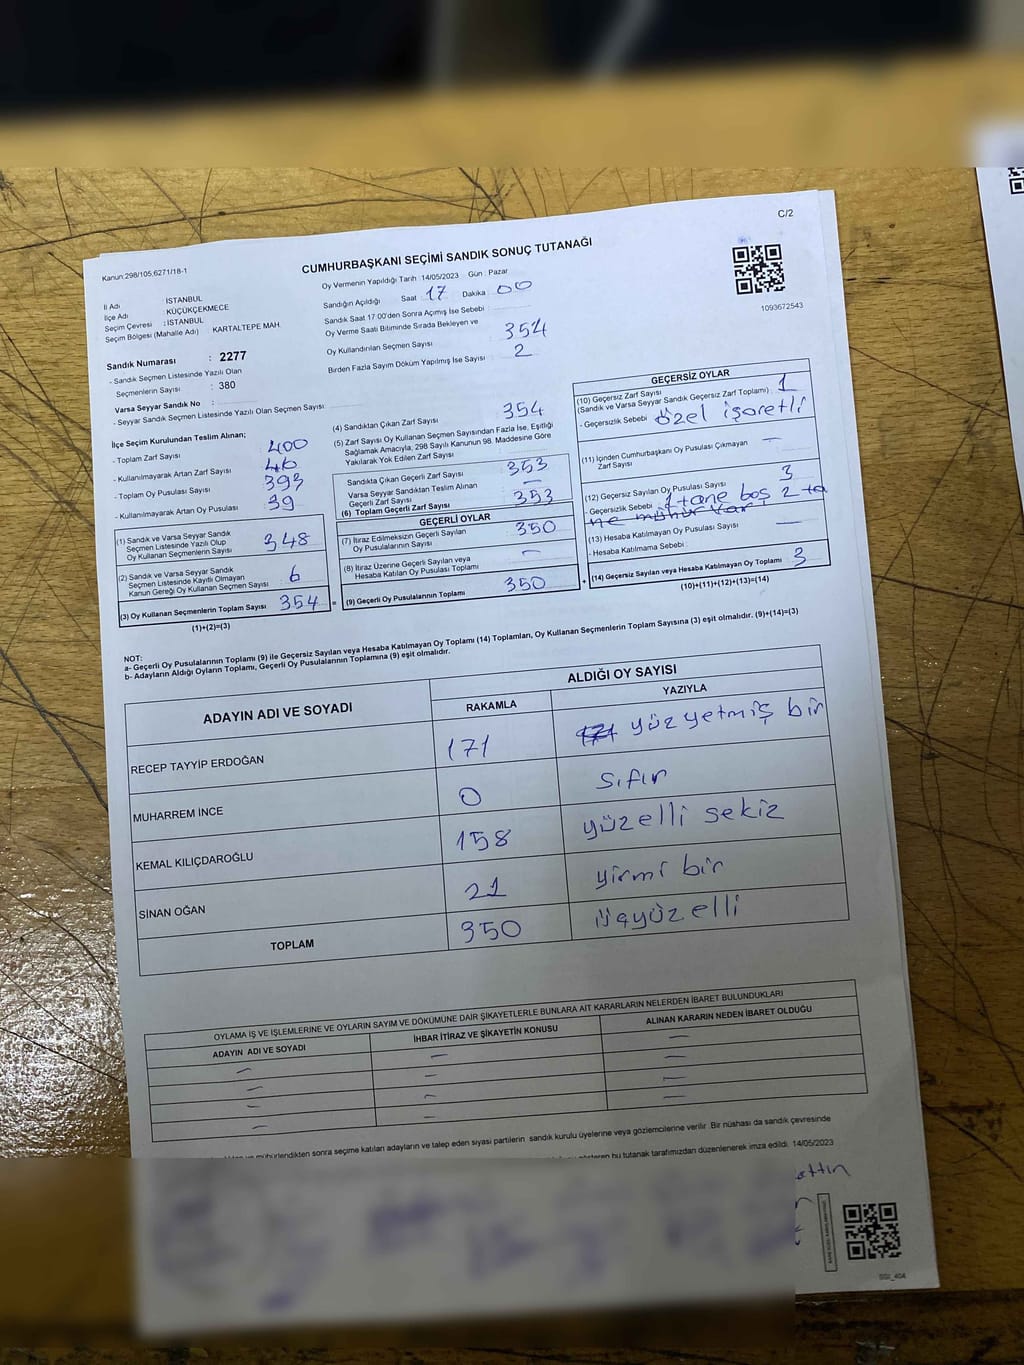 C/2
Kanun:298/105;6271/18-1
CUMHURBAŞKANI SEÇİMİ SANDIK SONUÇ TUTANAĞI
1093672543
İl Adı : İSTANBUL
İlçe Adı : KÜÇÜKÇEKMECE
Seçim Çevresi : İSTANBUL
Seçim Bölgesi (Mahalle Adı) : KARTALTEPE MAH.
Sandık Numarası : 2277
- Sandık Seçmen Listesinde Yazılı Olan
Seçmenlerin Sayısı : 380
Varsa Seyyar Sandık No :
- Seyyar Sandık Seçmen Listesinde Yazılı Olan Seçmen Sayısı :
Oy Vermenin Yapıldığı Tarih : 14/05/2023 Gün : Pazar
Sandığın Açıldığı Saat 17 Dakika 00
Sandık Saat 17:00'den Sonra Açımış İse Sebebi :
Oy Verme Saati Bitiminde Sırada Bekleyen ve
Oy Kullandırılan Seçmen Sayısı : 354
Birden Fazla Sayım Döküm Yapılmış İse Sayısı : 2
İlçe Seçim Kurulundan Teslim Alınan;
- Toplam Zarf Sayısı : 400
- Kullanılmayarak Artan Zarf Sayısı : 46
- Toplam Oy Pusulası Sayısı : 393
- Kullanılmayarak Artan Oy Pusulası : 39
(1) Sandık ve Varsa Seyyar Sandık
Seçmen Listesinde Yazılı Olup
Oy Kullanan Seçmenlerin Sayısı : 348
(2) Sandık ve Varsa Seyyar Sandık
Seçmen Listesinde Kayıtlı Olmayan
Kanun Gereği Oy Kullanan Seçmen Sayısı : 6
(3) Oy Kullanan Seçmenlerin Toplam Sayısı : 354 =
(1)+(2)=(3)
(4) Sandıktan Çıkan Zarf Sayısı : 354
(5) Zarf Sayısı Oy Kullanan Seçmen Sayısından Fazla İse, Eşitliği
Sağlamak Amacıyla, 298 Sayılı Kanunun 98. Maddesine Göre
Yakılarak Yok Edilen Zarf Sayısı :
Sandıkta Çıkan Geçerli Zarf Sayısı : 353
Varsa Seyyar Sandıktan Teslim Alınan
Geçerli Zarf Sayısı : —
(6) Toplam Geçerli Zarf Sayısı : 353
GEÇERLİ OYLAR
(7) İtiraz Edilmeksizin Geçerli Sayılan
Oy Pusulalarının Sayısı : 350
(8) İtiraz Üzerine Geçerli Sayılan veya
Hesaba Katılan Oy Pusulası Toplamı : —
(9) Geçerli Oy Pusulalarının Toplamı : 350 +
GEÇERSİZ OYLAR
(10) Geçersiz Zarf Sayısı : 1
(Sandık ve Varsa Seyyar Sandık Geçersiz Zarf Toplamı)
- Geçersizlik Sebebi : özel işaretli
(11) İçinden Cumhurbaşkanı Oy Pusulası Çıkmayan
Zarf Sayısı : —
(12) Geçersiz Sayılan Oy Pusulası Sayısı : 3
- Geçersizlik Sebebi : 1 tane boş 2 ta
ne mühür var
(13) Hesaba Katılmayan Oy Pusulası Sayısı : —
- Hesaba Katılmama Sebebi :
(14) Geçersiz Sayılan veya Hesaba Katılmayan Oy Toplamı : 3
(10)+(11)+(12)+(13)=(14)
NOT:
a- Geçerli Oy Pusulalarının Toplamı (9) ile Geçersiz Sayılan veya Hesaba Katılmayan Oy Toplamı (14) Toplamları, Oy Kullanan Seçmenlerin Toplam Sayısına (3) eşit olmalıdır. (9)+(14)=(3)
b- Adayların Aldığı Oyların Toplamı, Geçerli Oy Pusulalarının Toplamına (9) eşit olmalıdır.
ADAYIN ADI VE SOYADI
ALDIĞI OY SAYISI
RAKAMLA YAZIYLA
RECEP TAYYİP ERDOĞAN 171 171 yüz yetmiş bir
MUHARREM İNCE 0 sıfır
KEMAL KILIÇDAROĞLU 158 yüz elli sekiz
SİNAN OĞAN 21 yirmi bir
TOPLAM 350 üçyüz elli
OYLAMA İŞ VE İŞLEMLERİNE VE OYLARIN SAYIM VE DÖKÜMÜNE DAİR ŞİKAYETLERLE BUNLARA AİT KARARLARIN NELERDEN İBARET BULUNDUKLARI
ADAYIN ADI VE SOYADI İHBAR İTİRAZ VE ŞİKAYETİN KONUSU ALINAN KARARIN NEDEN İBARET OLDUĞU
— — —
— — —
— — —
— — —
mühürlendikten sonra seçime katılan adayların ve talep eden siyasi partilerin sandık kurulu üyelerine veya gözlemcilerine verilir .Bir nüshası da sandık çevresinde
gösteren bu tutanak tarafımızdan düzenlenerek imza edildi. 14/05/2023